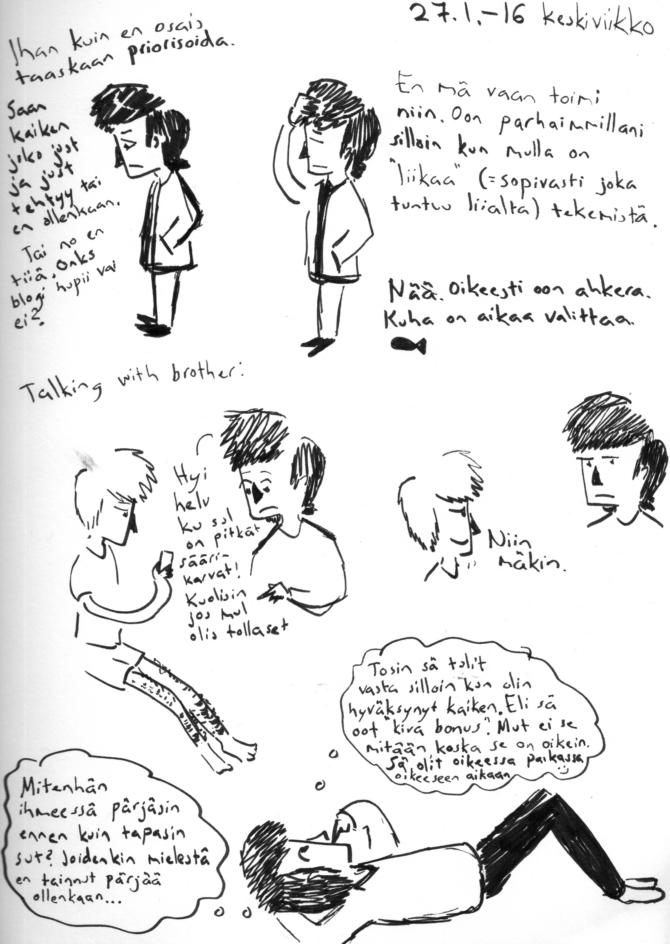 27.1.-16 keskiviikko
Ihan kuin en osais
taaskaan priorisoida.
Saan
kaiken
joko just
ja just
tehtyy tai
en ollenkaan.
Tai no en
tiiä. Onks
blogi hupii vai
ei?
En mä vaan toimi
niin. Oon parhaimmillani
silloin kun mulla on
"liikaa" (=sopivasti joka
tuntuu liialta) tekemistä.
Nää. Oikeesti oon ahkera.
Kuha on aikaa valittaa.
Talking with brother:
Hyi
helv
ku sul
on pitkät
sääri-
karvat!
Kuolisin
jos mul
olis tollaset
Niin
mäkin.
Tosin sä tulit
vasta silloin kun olin
hyväksynyt kaiken. Eli sä
oot "kiva bonus". Mut ei se
mitään koska se on oikein.
Sä olit oikeessa paikassa
oikeeseen aikaan
Mitenhän
ihmeessä pärjäsin
ennen kuin tapasin
sut? Joidenkin mielestä
en tainnut pärjää
ollenkaan...